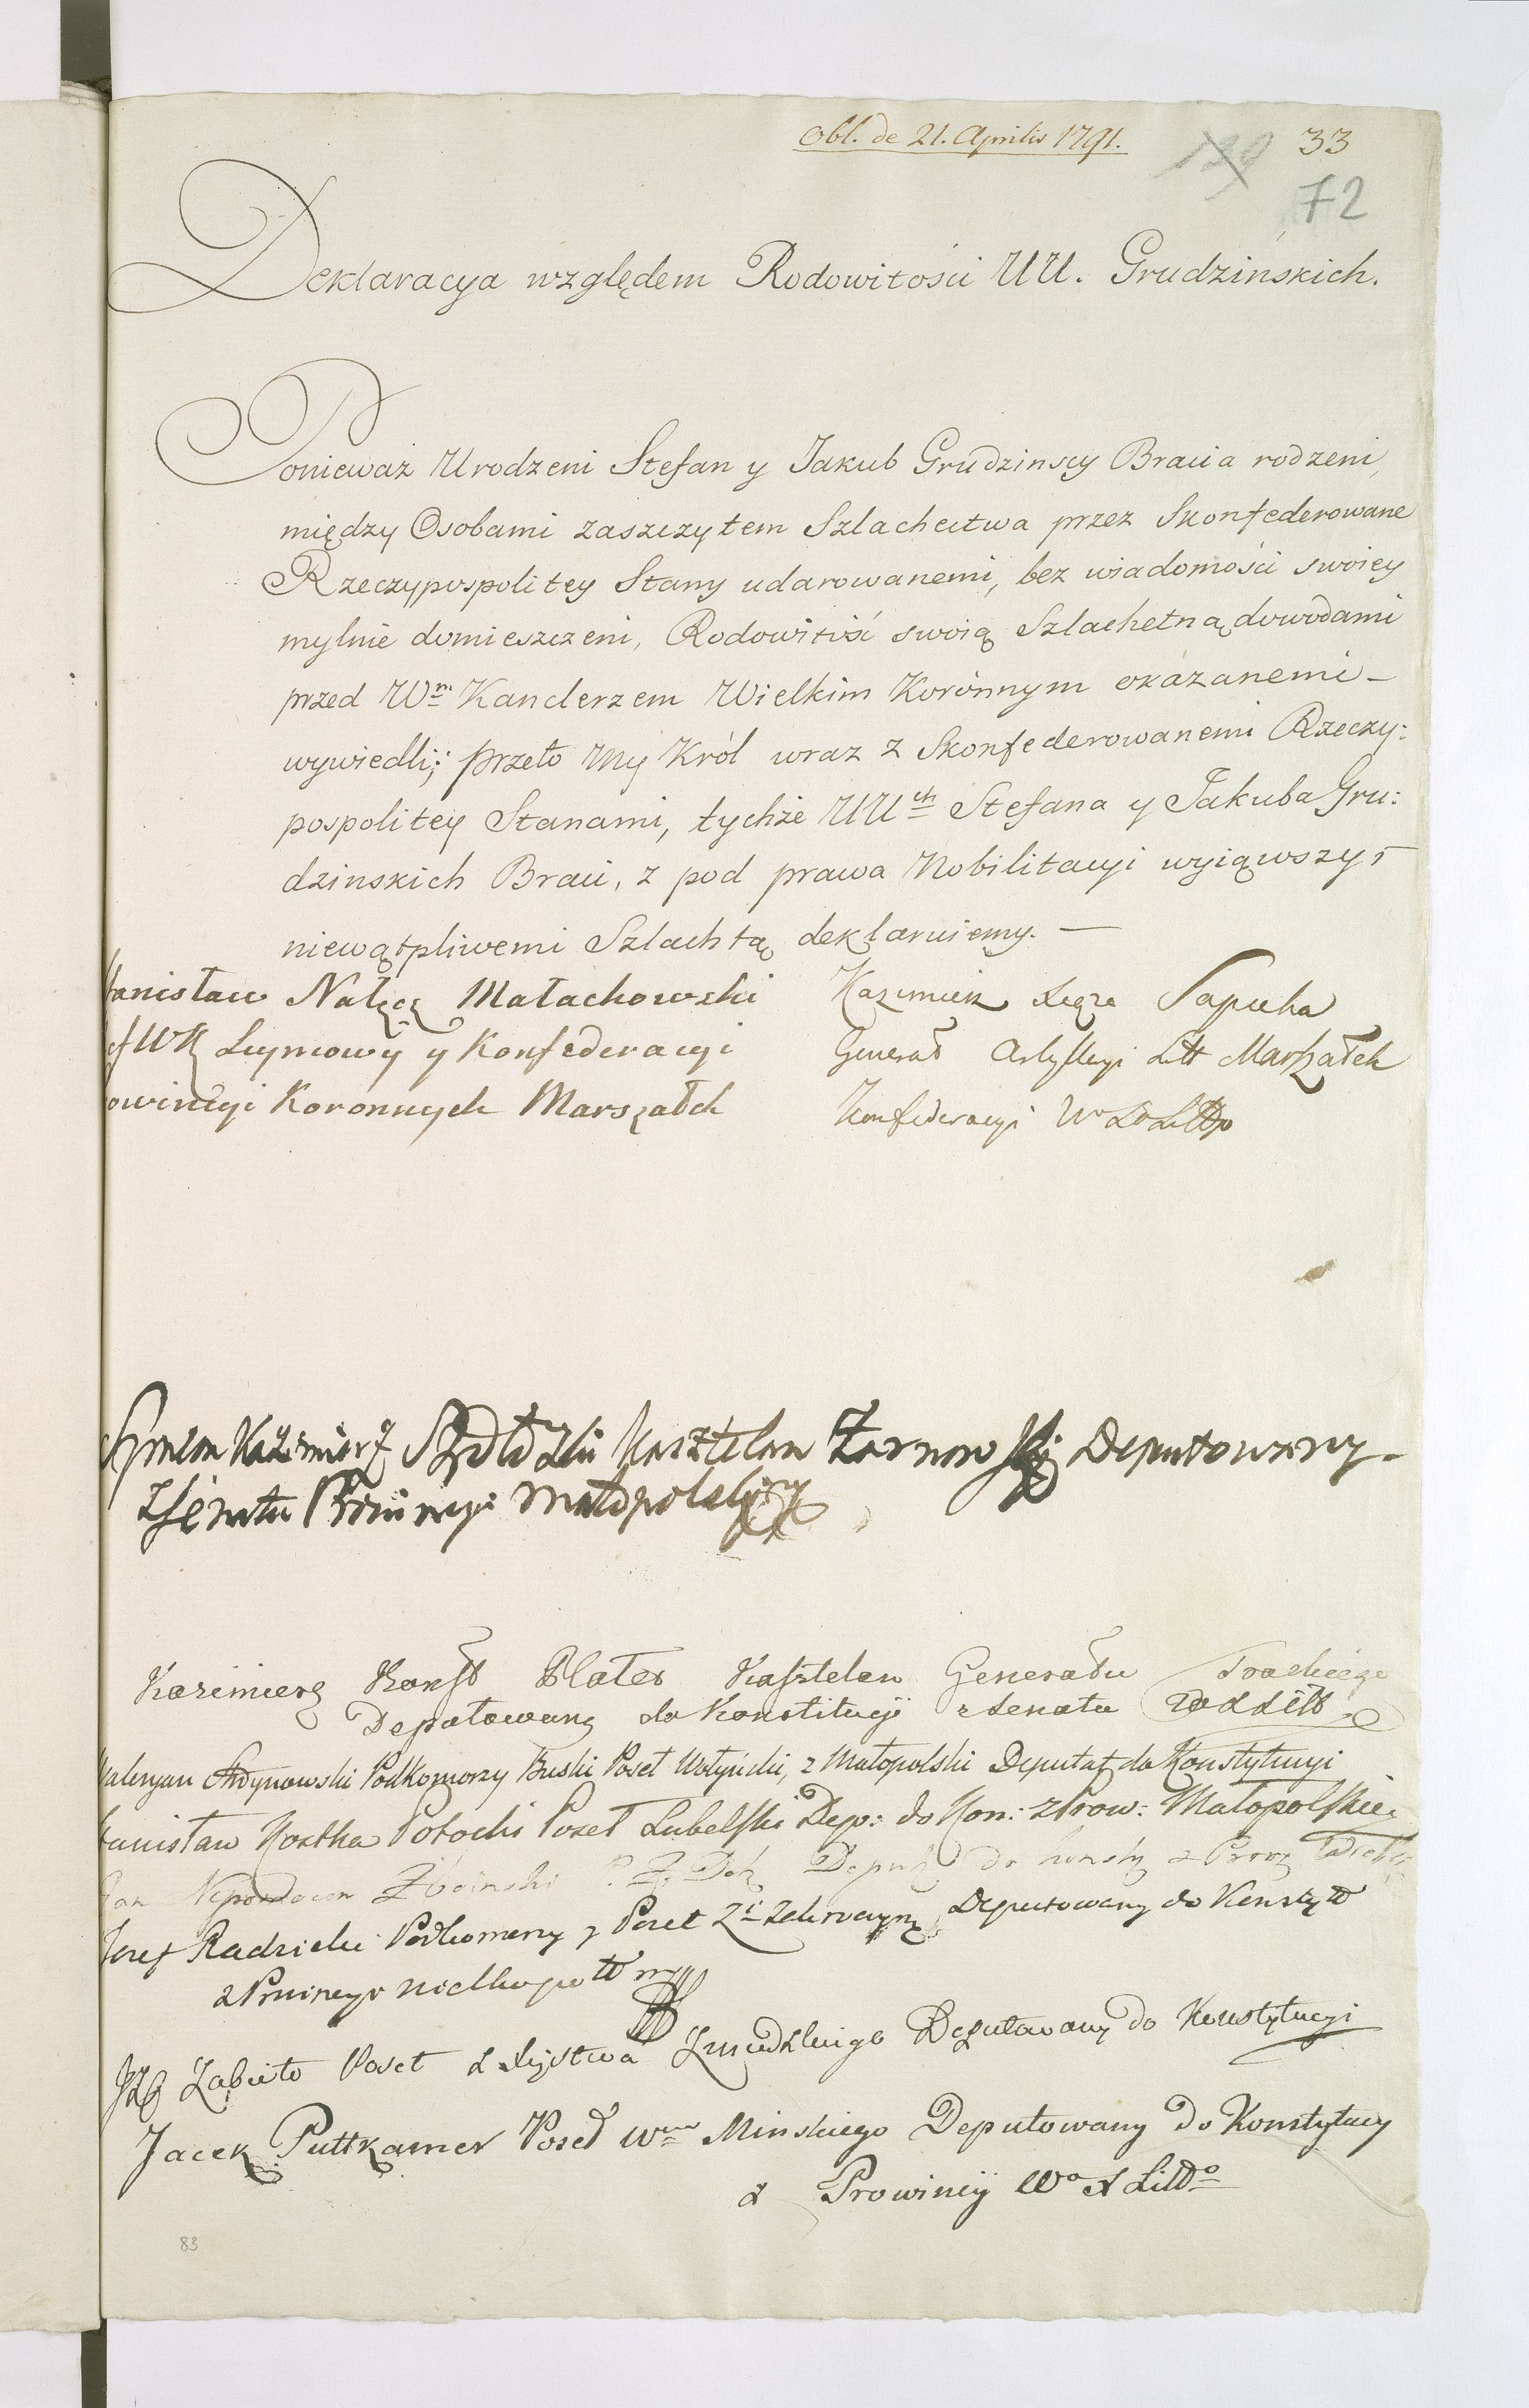 Obl. de 21. Aprilis 1791.
33
72
Deklaracya względem Rodowitości UU. Grudzińskich.
Ponieważ Urodzeni Stefan y Jakub Grudzinscy Bracia rodzeni,
między Osobami zaszczytem Szlachectwa przez Skonfederowane
Rzeczypospolitey Stany udarowanemi, bez wiadomości swoiey
mylnie domieszczeni, Rodowitość swoią Szlachetną dowodami
przed Wm Kanclerzem Wielkim Koronnym okazanemi —
wywiedli; przeto My Król wraz z Skonfederowanemi Rzeczy:
pospolitey Stanami, tychże UUch Stefana y Jakuba Gru:
dzinskich Braci, z pod prawa Nobilitacyi wyiąwszy,
niewątpliwemi Szlachtą deklaruiemy. —
anisław Nałęcz Małachowski
WK Seymowy y Konfederacyi
owincyi Koronnych Marszałek
Kazimierz Sapieha
Generał Artylleryi Litt Marszałek
Konfederacyi W X Litt
Symeon Kazimierz Szydłowski Kasztelan Żarnowski Deputowany
z Senatu Prowincyi Małopolskiey
Kazimierz Konst Plater Kasztelan Generału Trockiego
Deputowany do Konstitucyi z Senatu
aleryan Stroynowski Podkomorzy Buski Poseł Wołyński, z Małopolski Deputat do Konstytucyi
tanisław Kostka Potocki Poseł Lubelski Dep: do Kon: z Prow: Małopolskiey
Jan Nepomucen Zboinski P. Z. Dob. Deput do Konsty z Prow
Jozef Radzicki Podkomorzy y Poseł Zi Zakroczym: Deputowany do Konstyt
z Prowincyi Wielkopol
Zabiełło Poseł z Xięstwa Zmudzkiego Deputowany do Konstytucyi
Jacek Puttkamer Poseł Wa Minskiego Deputowany do Konstytucy
z Prowincyi Wo X Litto
83